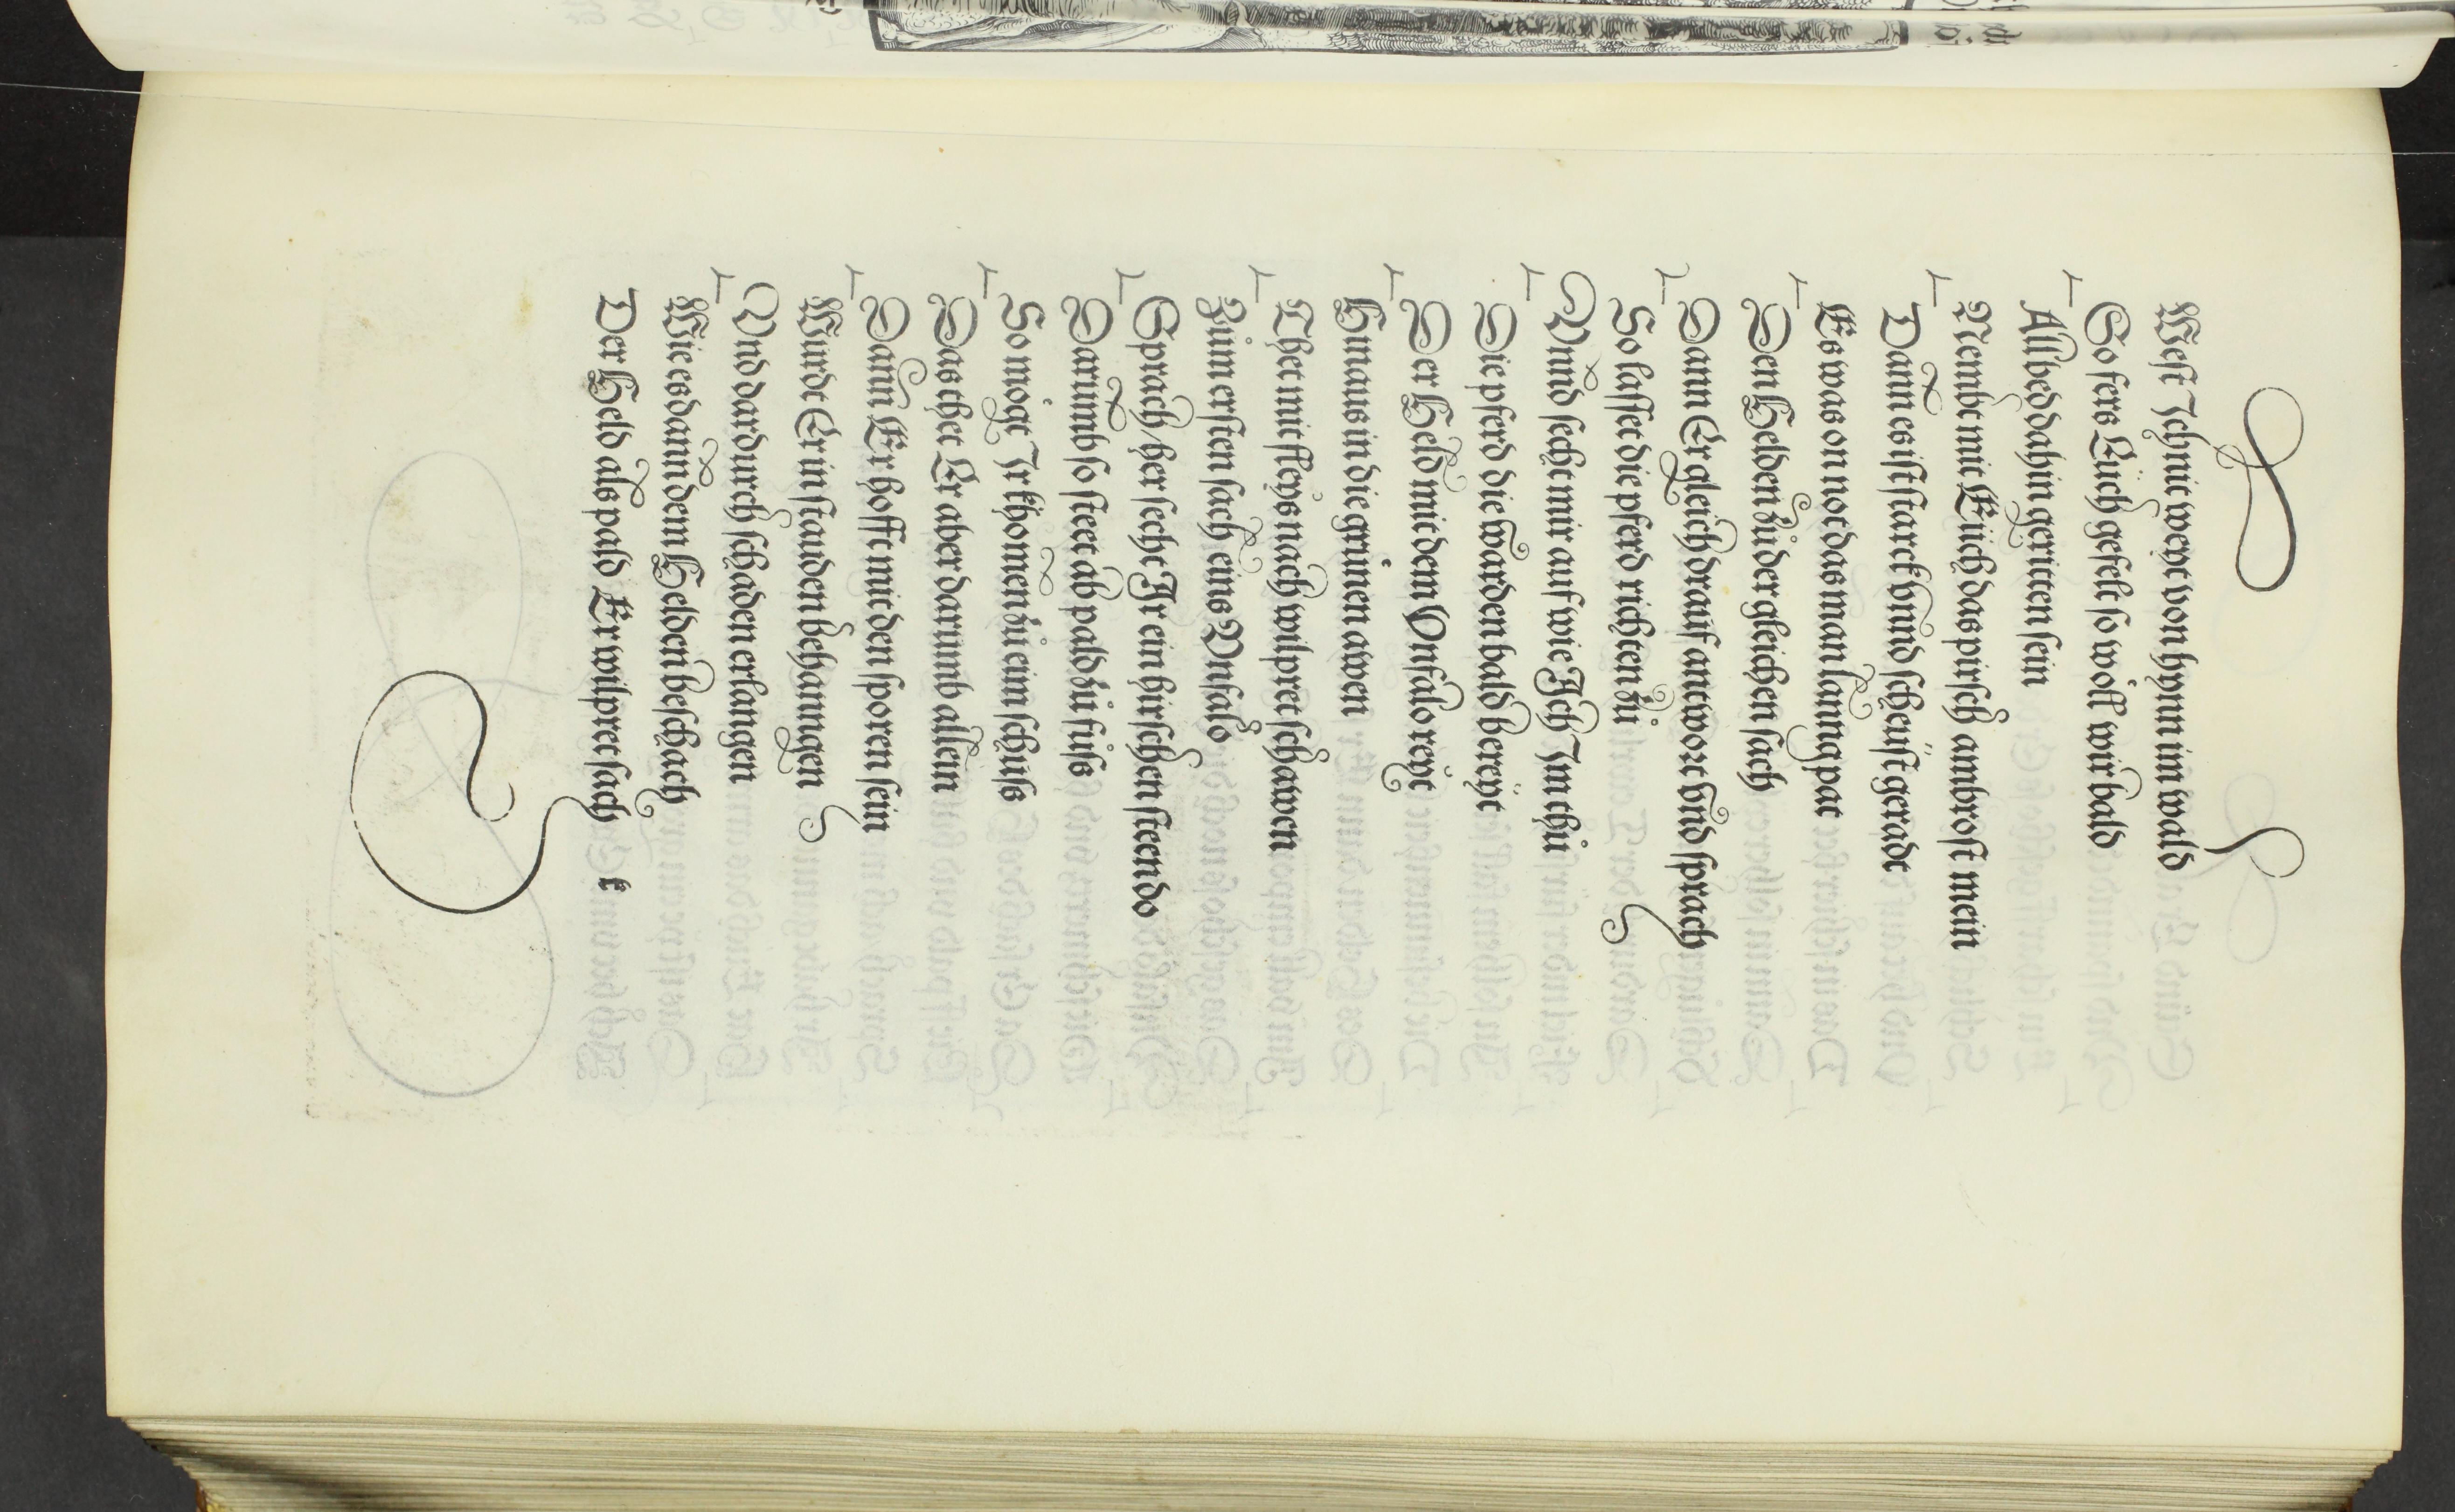 West Jch nit weyt von hynn im wald
So fers Euch gefelt so wöll wir bald
All bed dahin geritten sein
Nembt mit Euch das pirsch ambrost mein
Dann es ist starck vnnd scheüst geradt
Es was on not das man lanng pat
Den Helden zů der gleichen sach
Dann Er gleich drauf antwort vnd sprach
So lasset die pferd richten zů
Vnnd secht mir auf wie Jch Jm thů
Die pferd die warden bald bereyt
Der Held mit dem Vnfalo reyt
Hinaus in die grůnen awen
Thet mit fleys nach wilpret schawen
Zům ersten sach eins Vnfalo
Sprach her secht Jr ein hirschen steen do
Darumb so steet ab pald zů fůß
So mögt Jr khomen zů eim schuß
Das thet Er aber darumb allein
Dann Er hofft mit den sporen sein
Wurdt Er in stauden behanngen
Vnd dardurch schaden erlangen
Wie es dann dem Helden beschach
Der Held als pald Er wilpret sach